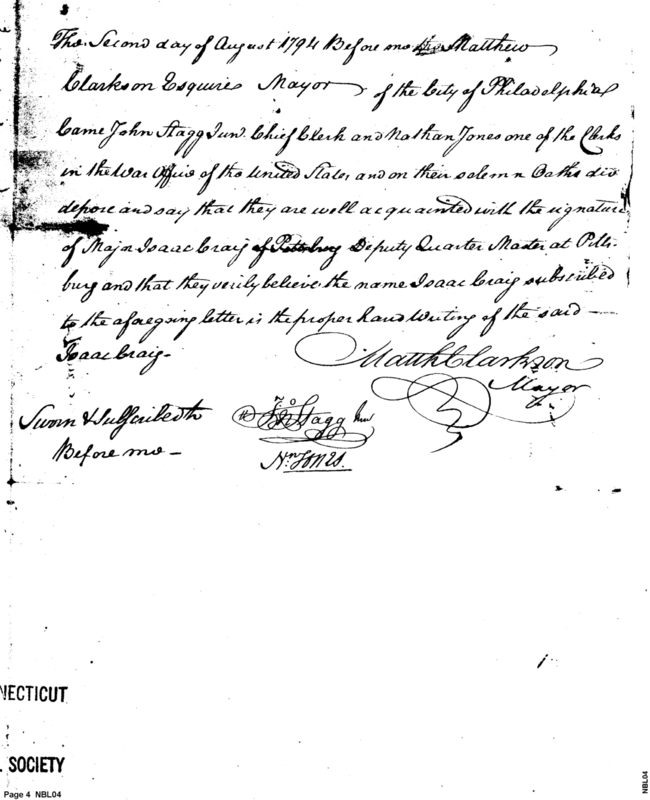 The Second day of August 1794 Before me Matthew
Clarkson Esquire Mayor of the City of Philadelphia
Came John Stagg Junr. Chief Clerk and Nathan Jones one of the Clerks
in the War Office of the United States and on their solemn Oaths did
depose and say that they are well acquainted with the signature
of Major Isaac Craig of Pittsburg Deputy Quarter Master at Pitts-
burg and that they verily believe the name Isaac Craig subscribed
to the aforegoing letter is the proper hand writing of the said —
Isaac Craig -
Matth Clarkson
Mayor
Sworn & Subscribed to
Before me —
Jno Stagg Junr
Nn Jones.
NECTICUT
SOCIETY
Page 4 NBL04
NBL04